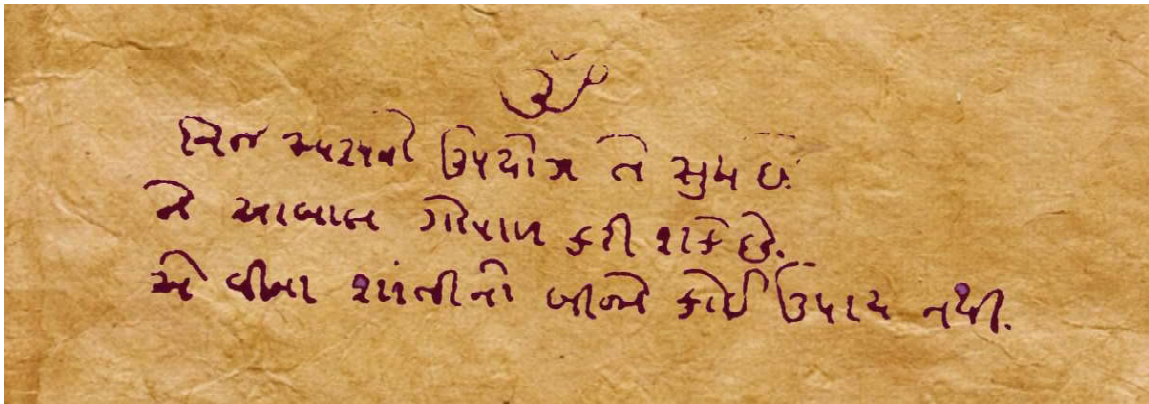 ૐ
નિજ સ્વરૂપનો ઉપયોગ તે સુખ છે.
તે આબાલ ગોપાળ કરી શકે છે.
એ વીના શાંતીનો બીજો કોઈ ઉપાય નથી.